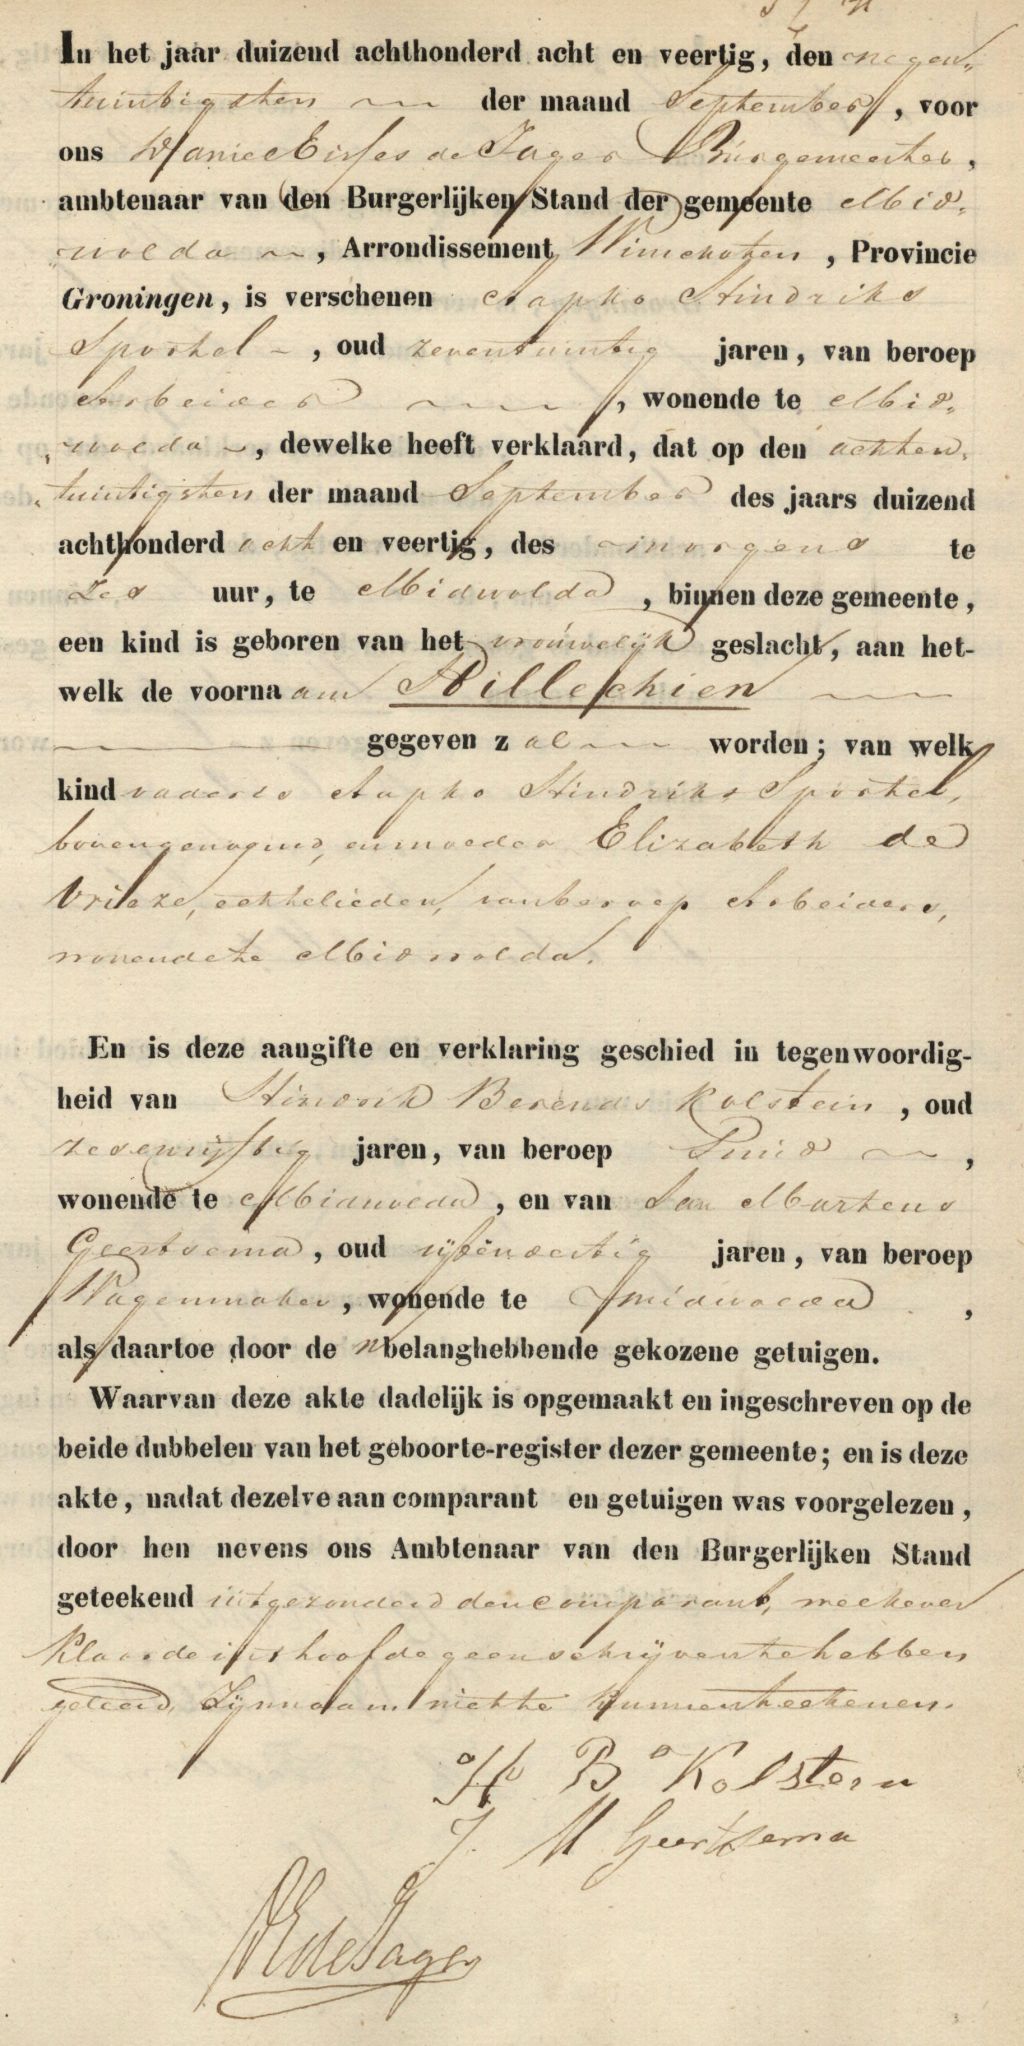 In het jaar duizend achthonderd acht en veertig, den negen-
twintigsten der maand September, voor
ons de Jager Burgemeester,
ambtenaar van den Burgerlijken Stand der gemeente Mid-
wolda, Arrondissement Winschoten, Provincie
Groningen, is verschenen Aapko Hindriks
Sportel, oud zeventwintig jaren, van beroep
Arbeider, wonende te Mid-
wolda, dewelke heeft verklaard, dat op den achten-
twintigsten der maand September des jaars duizend
achthonderd acht en veertig, des morgens te
zes uur, te Midwolda, binnen deze gemeente,
een kind is geboren van het vrouwelijk geslacht, aan het-
welk de voornaam Hillechien
gegeven zal worden; van welk
kind vader is Aapko Hindriks Sportel,
bovengenoemd, en moeder Elizabeth de
Vrieze, echtelieden, van beroep Arbeiders,
wonende te Midwolda.
En is deze aangifte en verklaring geschied in tegenwoordig-
heid van Hindrik Berends Kolstein, oud
zesenvijftig jaren, van beroep Smid,
wonende te Midwolda, en van Jan Martens
Geertsema, oud vijfenveertig jaren, van beroep
Wagenmaker, wonende te Midwolda,
als daartoe door de belanghebbende gekozene getuigen.
Waarvan deze akte dadelijk is opgemaakt en ingeschreven op de
beide dubbelen van het geboorte-register dezer gemeente; en is deze
akte, nadat dezelve aan comparant en getuigen was voorgelezen,
door hen nevens ons Ambtenaar van den Burgerlijken Stand
geteekend uitgezonderd den comparant, welke ver
klaarde uit hoofde geen schrijven te hebben
geleerd, zijn naam niet te kunnen teekenen.
H B Kolstein
J. M Geertsema
DE de Jager